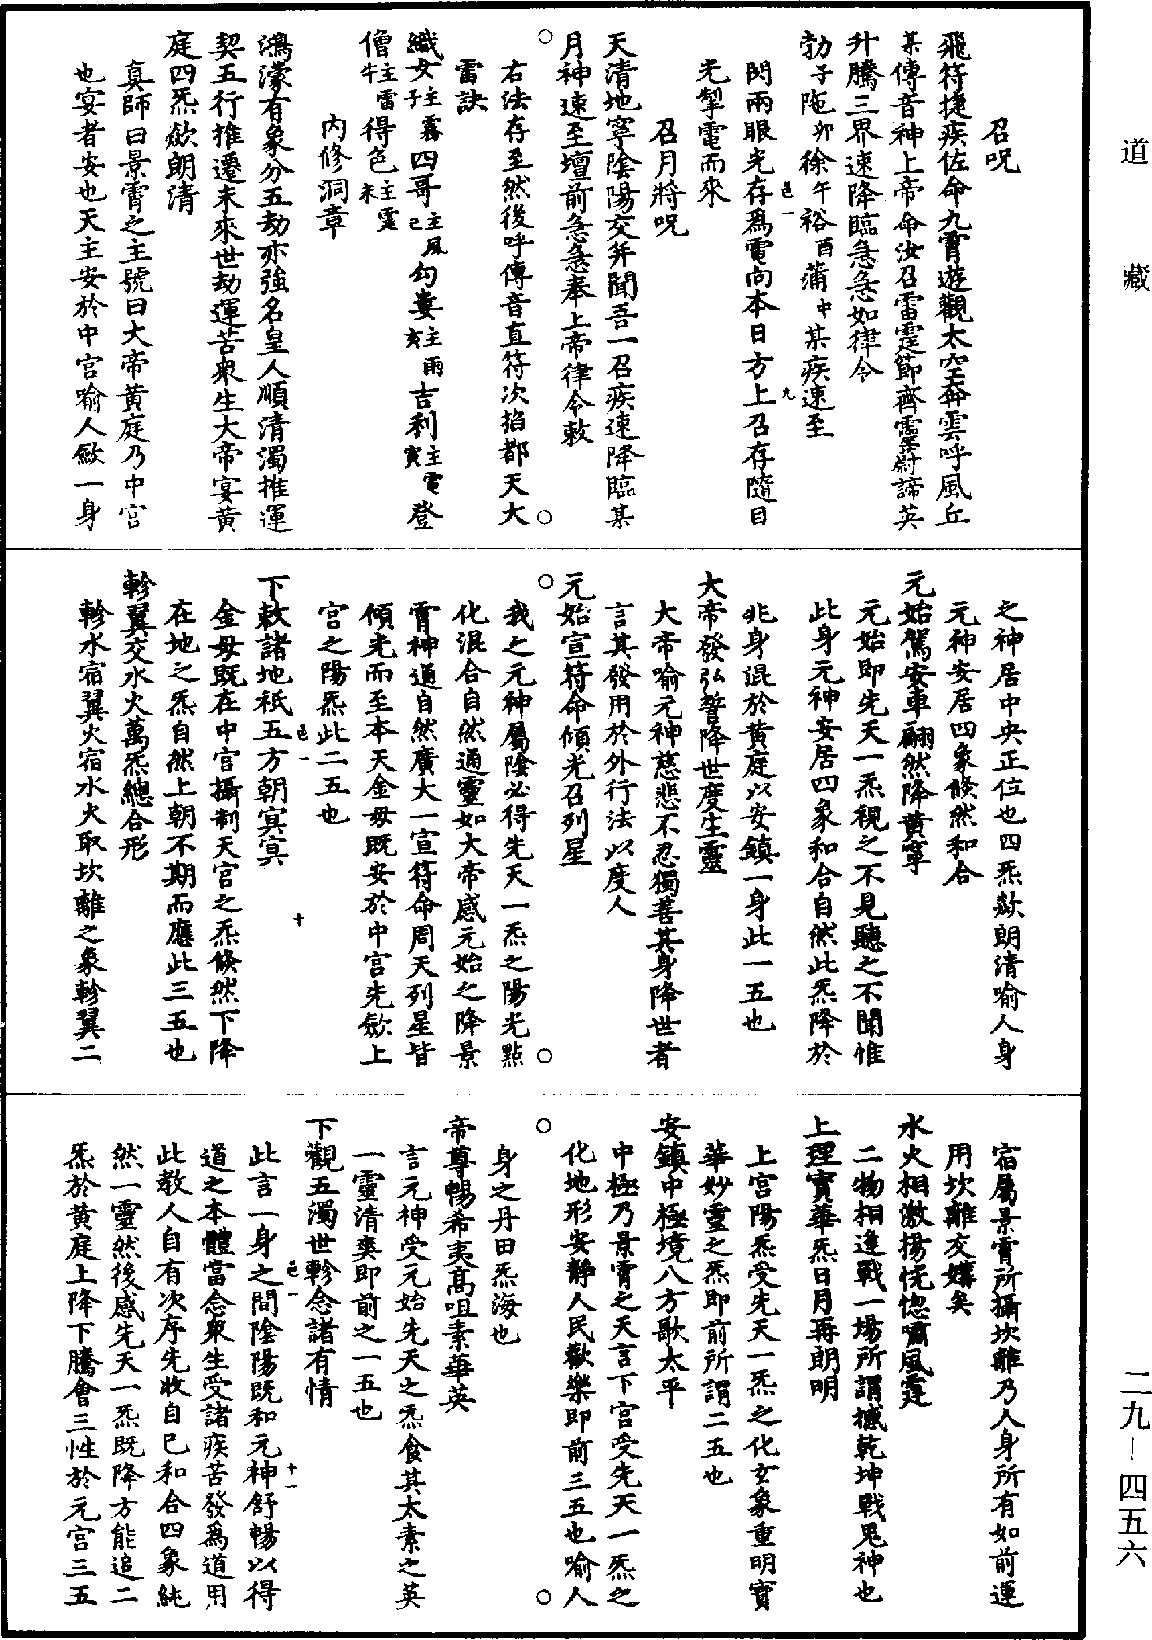 道藏
召呪
飛符捷疾佐命九霄遊觀太空奔雲呼風丘
某傳音神上帝命汝召雷霆節齊靈尉諦英
升騰三界速降臨急急如律令
勃子陁卯徐午裕酉蒲中某疾速至
閃兩眼光存爲電向本日方上召存隨目
光掣電而來
召月將呪
天清地寧陰陽交并聞吾一召疾速降臨某
月神速至壇前急急奉上帝律令敕
右法存至然後呼傳音直符次掐都天大
雷訣
織女主霧子四哥主風己勾婁主雨亥吉利主電寅登
僧主雷牛得色主霊未
內修洞章
鴻濛有象分五劫亦強名皇人順清濁推運
契五行推遷未來世劫運苦衆生大帝宴黃
庭四炁歛朗清
真師曰景霄之主號曰大帝黃庭乃中宮
也宴者安也天主安於中宮喻人歛一身
之神居中央正位也四炁歛朗清喻人身
元神安居四象倏然和合
元始駕安車翩然降黃寧
元始即先天一炁視之不見聽之不聞惟
此身元神安居四象和合自然此炁降於
兆身混於黃庭以安鎮一身此一五也
大帝發弘誓降世度生靈
大帝喻元神慈悲不忍獨善其身降世者
言其發用於外行法以度人
元始宣符命傾光召列星
我之元神屬陰必得先天一炁之陽光點
化混合自然通靈如大帝感元始之降景
霄神通自然廣大一宣符命周天列星皆
傾光而至本天金母既安於中宮先歛上
宮之陽炁此二五也
下敕諸地祇五方朝冥冥
金母既在中宮攝制天宮之炁倏然下降
在地之炁自然上朝不期而應此三五也
軫翼交水火萬炁總合形
軫水宿翼火宿水火取坎離之象軫翼二
宿屬景霄所攝坎離乃人身所有如前運
用坎離交媾矣
水火相激揚恍惚嘯風霆
二物相逢戰一場所謂撼乾坤戰鬼神也
上理寶華炁日月再朗明
上宮陽炁受先天一炁之化玄象重明寶
華妙靈之炁即前所謂二五也
安鎮中極境八方歌太平
中極乃景霄之天言下宮受先天一炁之
化地形安靜人民歡樂即前三五也喻人
身之丹田炁海也
帝尊暢希夷高咀素華英
言元神受元始先天之炁食其太素之英
一靈清爽即前之一五也
下觀五濁世軫念諸有情
此言一身之間陰陽既和元神舒暢以得
道之本體當念衆生受諸疾苦發爲道用
此教人自有次序先收自己和合四象純
然一靈然後感先天一炁既降方能追二
炁於黃庭上降下騰會三性於元宮三五
二九—四五六